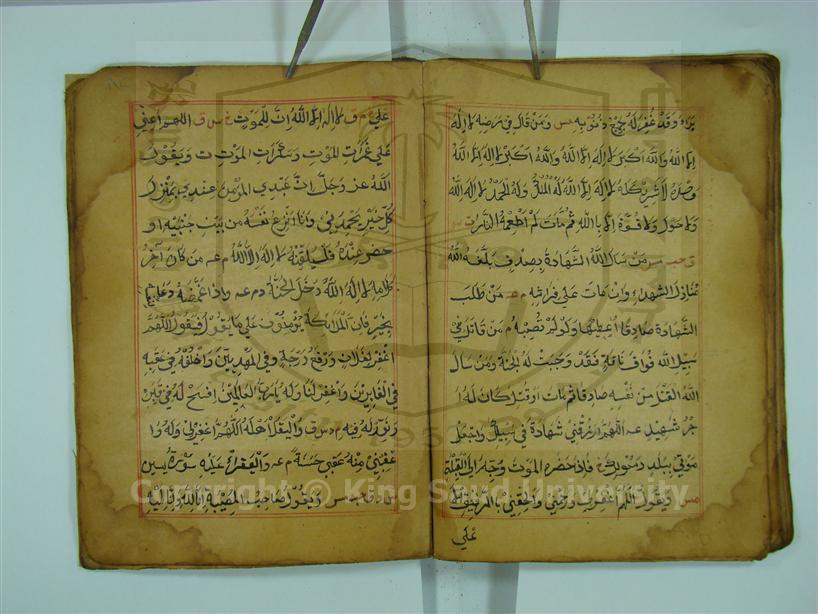 برء وقد غفر له جميع ذنوبه مس ومن قال في مرضه لا اله
الا الله والله اكبر لا اله الا الله والله اكبر لا اله الا الله
وحده لا شريك له لا اله الا الله له الملك وله الحمد لا اله الا الله
ولا حول ولا قوة الا بالله ثم مات لم تطعمه النار ت س
ق حب مس من سأل الله الشهادة بصدق بلغه الله
منازل الشهداء وان مات على فراشه م عه من طلب
الشهادة صادقا اعطيها ولو لم تصبه م من قاتل في
سبيل الله فواق ناقة فقد وجبت له الجنة ومن سال
الله القتل من نفسه صادقا ثم مات او قتل كان له ا
جر شهيد عه اللهم ارزقني شهادة في سبيلك واجعل
موتي ببلد رسولك خ فاذا حضره الموت وجه الى القبلة
مس ويقول اللهم اغفر لي وارحمني والحقني بالرفيق الا
على
على خ م ق لا اله الا الله ان للموت خ س ق اللهم اعني
على غمرات الموت وسكرات الموت ت ويقول
الله عز وجل ان عبدي المؤمن عندي بمنزل
كل خير يحمدني وانا انزع نفسه من بين جنبيه ا و
حضر عنده فليلقنه لا اله الا الله م عه من كان آخر
كلامه لا اله الا الله دخل الجنة د م عه واذا غمضه دعا
بخير فان الملائكة يؤمنون على ما يقول فيقول اللهم
اغفر لفلان وارفع درجته في المهديين واخلفه في عقبه
في الغابرين واغفر لنا وله يا رب العالمين افسح له في قبره
ونور له فيه م د س ق وليقل اهله اللهم اغفر لي وله وا
عقبني منه عقبى حسنة م عه وليقرأ عليه سورة يسين
س د ق حب مس ويقول صاحب المصيبة انا لله وانا اليه
Copyright © King Saud University